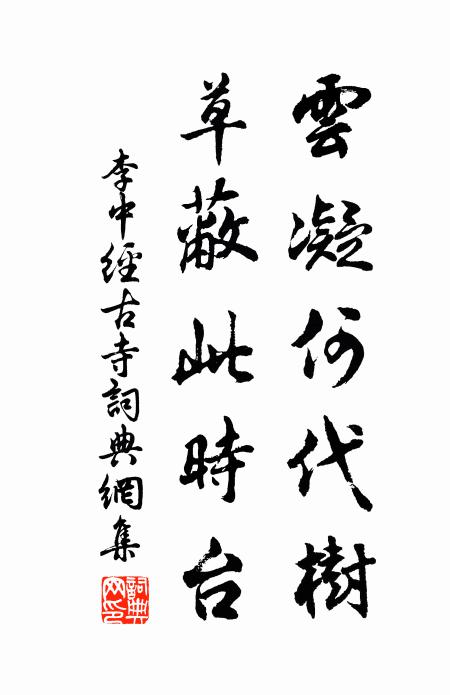 雲凝何代樹
草蔽此時台
李中經古寺詞典網集
詞典
网印